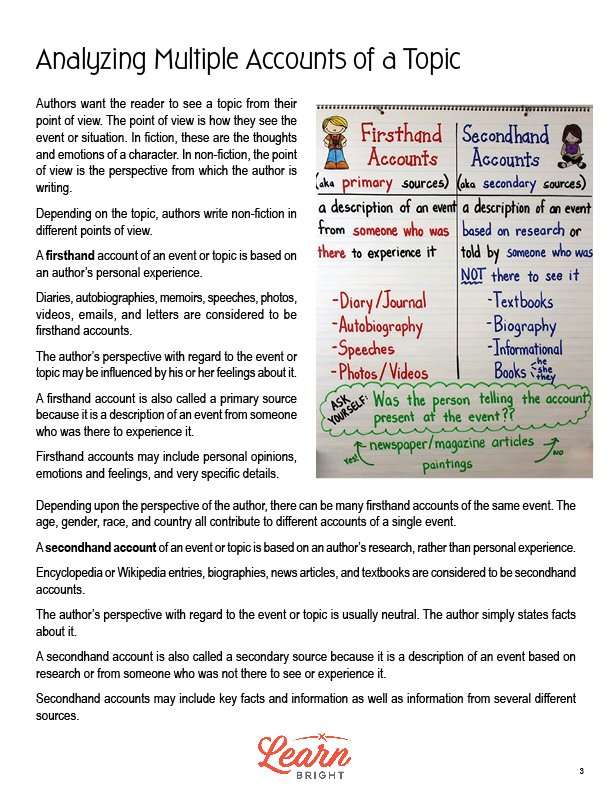 Analyzing Multiple Accounts of a Topic
Authors want the reader to see a topic from their
point of view. The point of view is how they see the
event or situation. In fiction, these are the thoughts
and emotions of a character. In non-fiction, the point
of view is the perspective from which the author is
writing.
Depending on the topic, authors write non-fiction in
different points of view.
A firsthand account of an event or topic is based on
an author's personal experience.
Diaries, autobiographies, memoirs, speeches, photos,
videos, emails, and letters are considered to be
firsthand accounts.
The author's perspective with regard to the event or
topic may be influenced by his or her feelings about it.
A firsthand account is also called a primary source
because it is a description of an event from someone
who was there to experience it.
Firsthand accounts may include personal opinions,
emotions and feelings, and very specific details.
Firsthand
Accounts
(aka primary sources)
a description of an event
from someone who was
there to experience it
-Diary/Journal
-Autobiography
-Speeches
-Photos/Videos
Secondhand
Accounts
(aka secondary sources)
a description of an event
based on research or
told by someone who was
NOT there to see it
-Textbooks
-Biography
-Informational
Books
he
she
they
ASK
YOURSELF:
Was the person telling the account
present at the event??
Yes!
newspaper/magazine articles
NO
paintings
Depending upon the perspective of the author, there can be many firsthand accounts of the same event. The
age, gender, race, and country all contribute to different accounts of a single event.
A secondhand account of an event or topic is based on an author's research, rather than personal experience.
Encyclopedia or Wikipedia entries, biographies, news articles, and textbooks are considered to be secondhand
accounts.
The author's perspective with regard to the event or topic is usually neutral. The author simply states facts
about it.
A secondhand account is also called a secondary source because it is a description of an event based on
research or from someone who was not there to see or experience it.
Secondhand accounts may include key facts and information as well as information from several different
sources.
Learn
BRIGHT
3